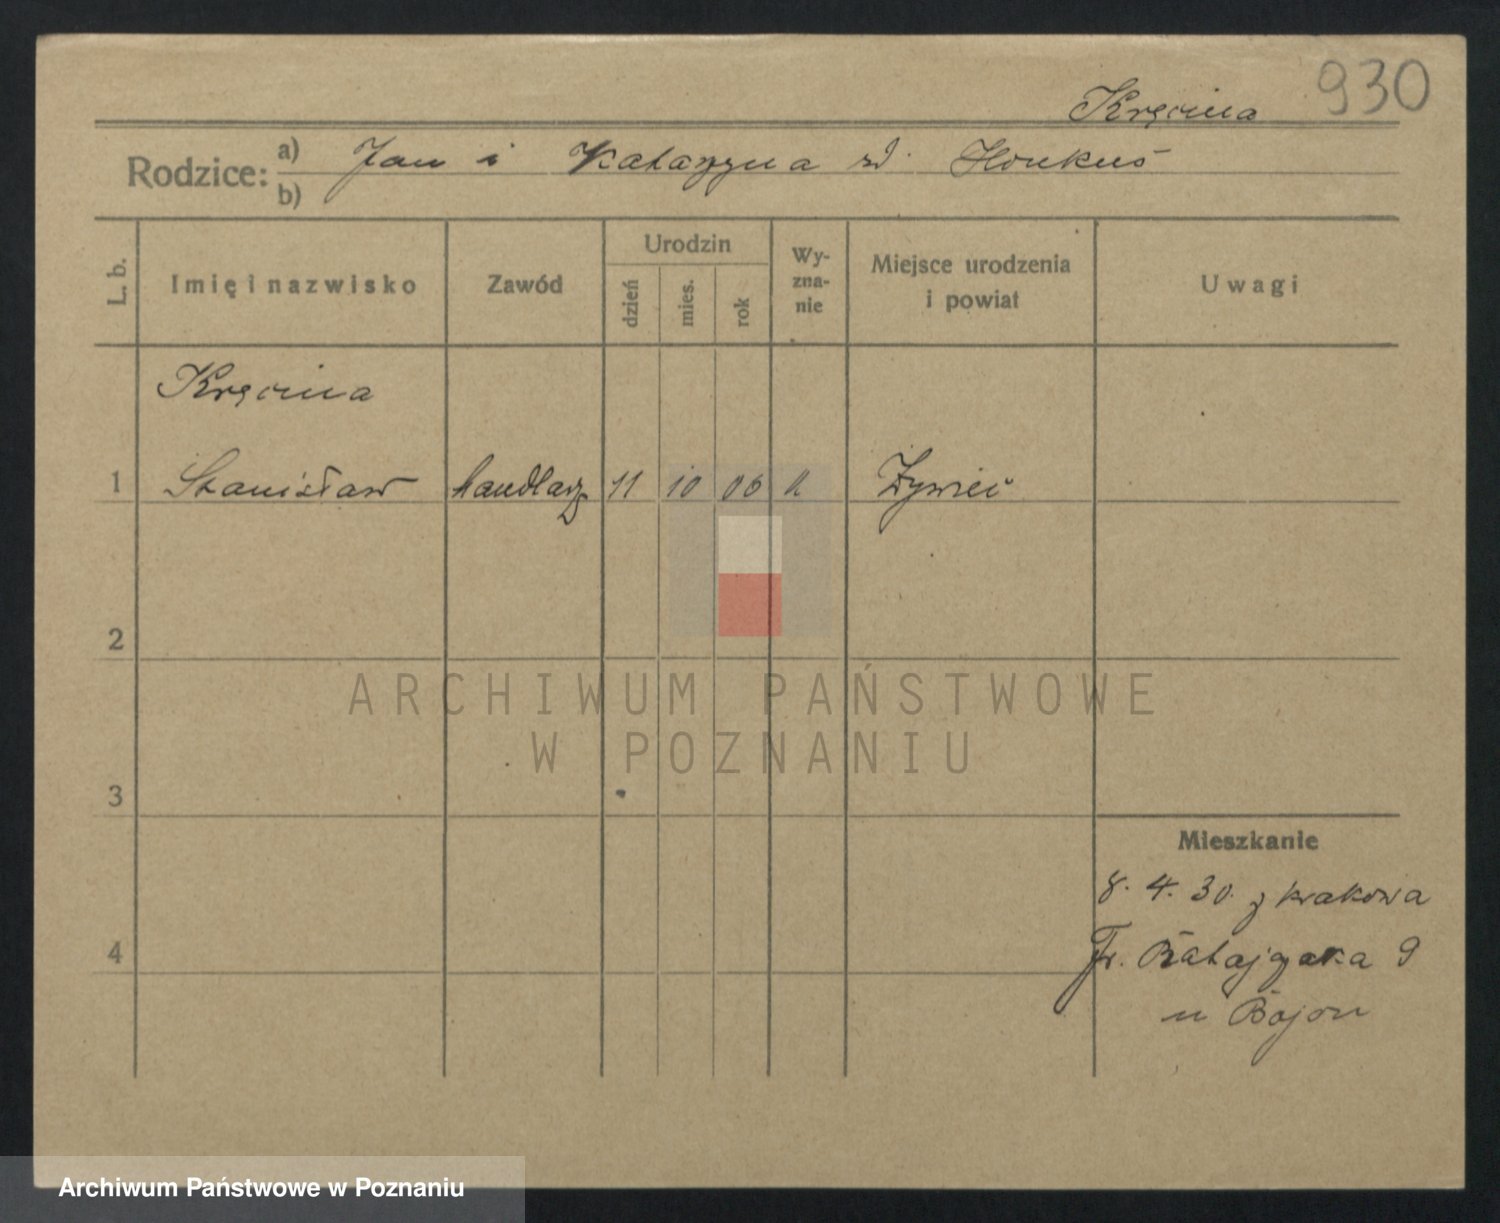 930
Kręcina
Rodzice: a) Jan i Katarzyna zd. Honkus
b)
L. b.
Imię i nazwisko
Zawód
Urodzin
dzień
mies.
rok
Wy-
zna-
nie
Miejsce urodzenia
i powiat
Uwagi
Kręcina
1 Stanisław handlarz 11 10 06 Żywiec
2
3
4
Mieszkanie
8. 4. 30. z Krakowa
Fr. Ratajczaka 9
u
ARCHIWUM PAŃSTWOWE
W POZNANIU
Archiwum Państwowe w Poznaniu